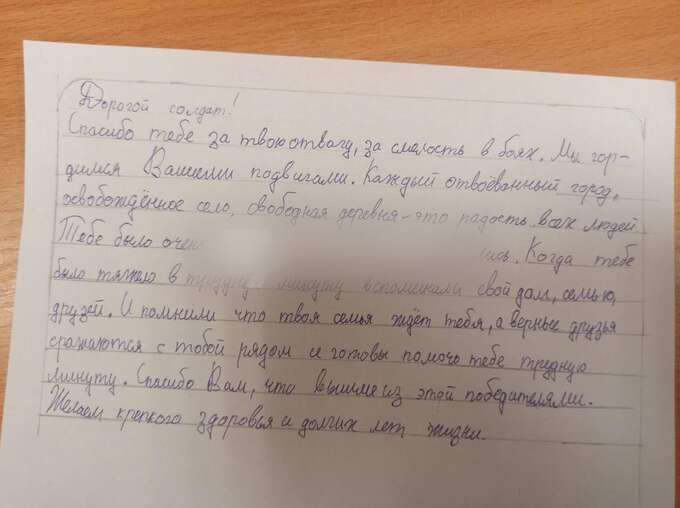 Дорогой солдат!
Спасибо тебе за твою отвагу, за смелость в боях. Мы гор-
димся Вашими подвигами. Каждый отвоёванный город,
освобождённое село, свободная деревня – это радость всех людей
Тебе было очен Когда тебе
было тяжело в трудную минуту вспоминали свой дом, семью,
друзей. И помнили что твоя семья ждёт тебя, а верные друзья
сражаются с тобой рядом и готовы помочь тебе трудную
минуту. Спасибо Вам, что вышли из этой победителями.
Желаем крепкого здоровья и долгих лет жизни.